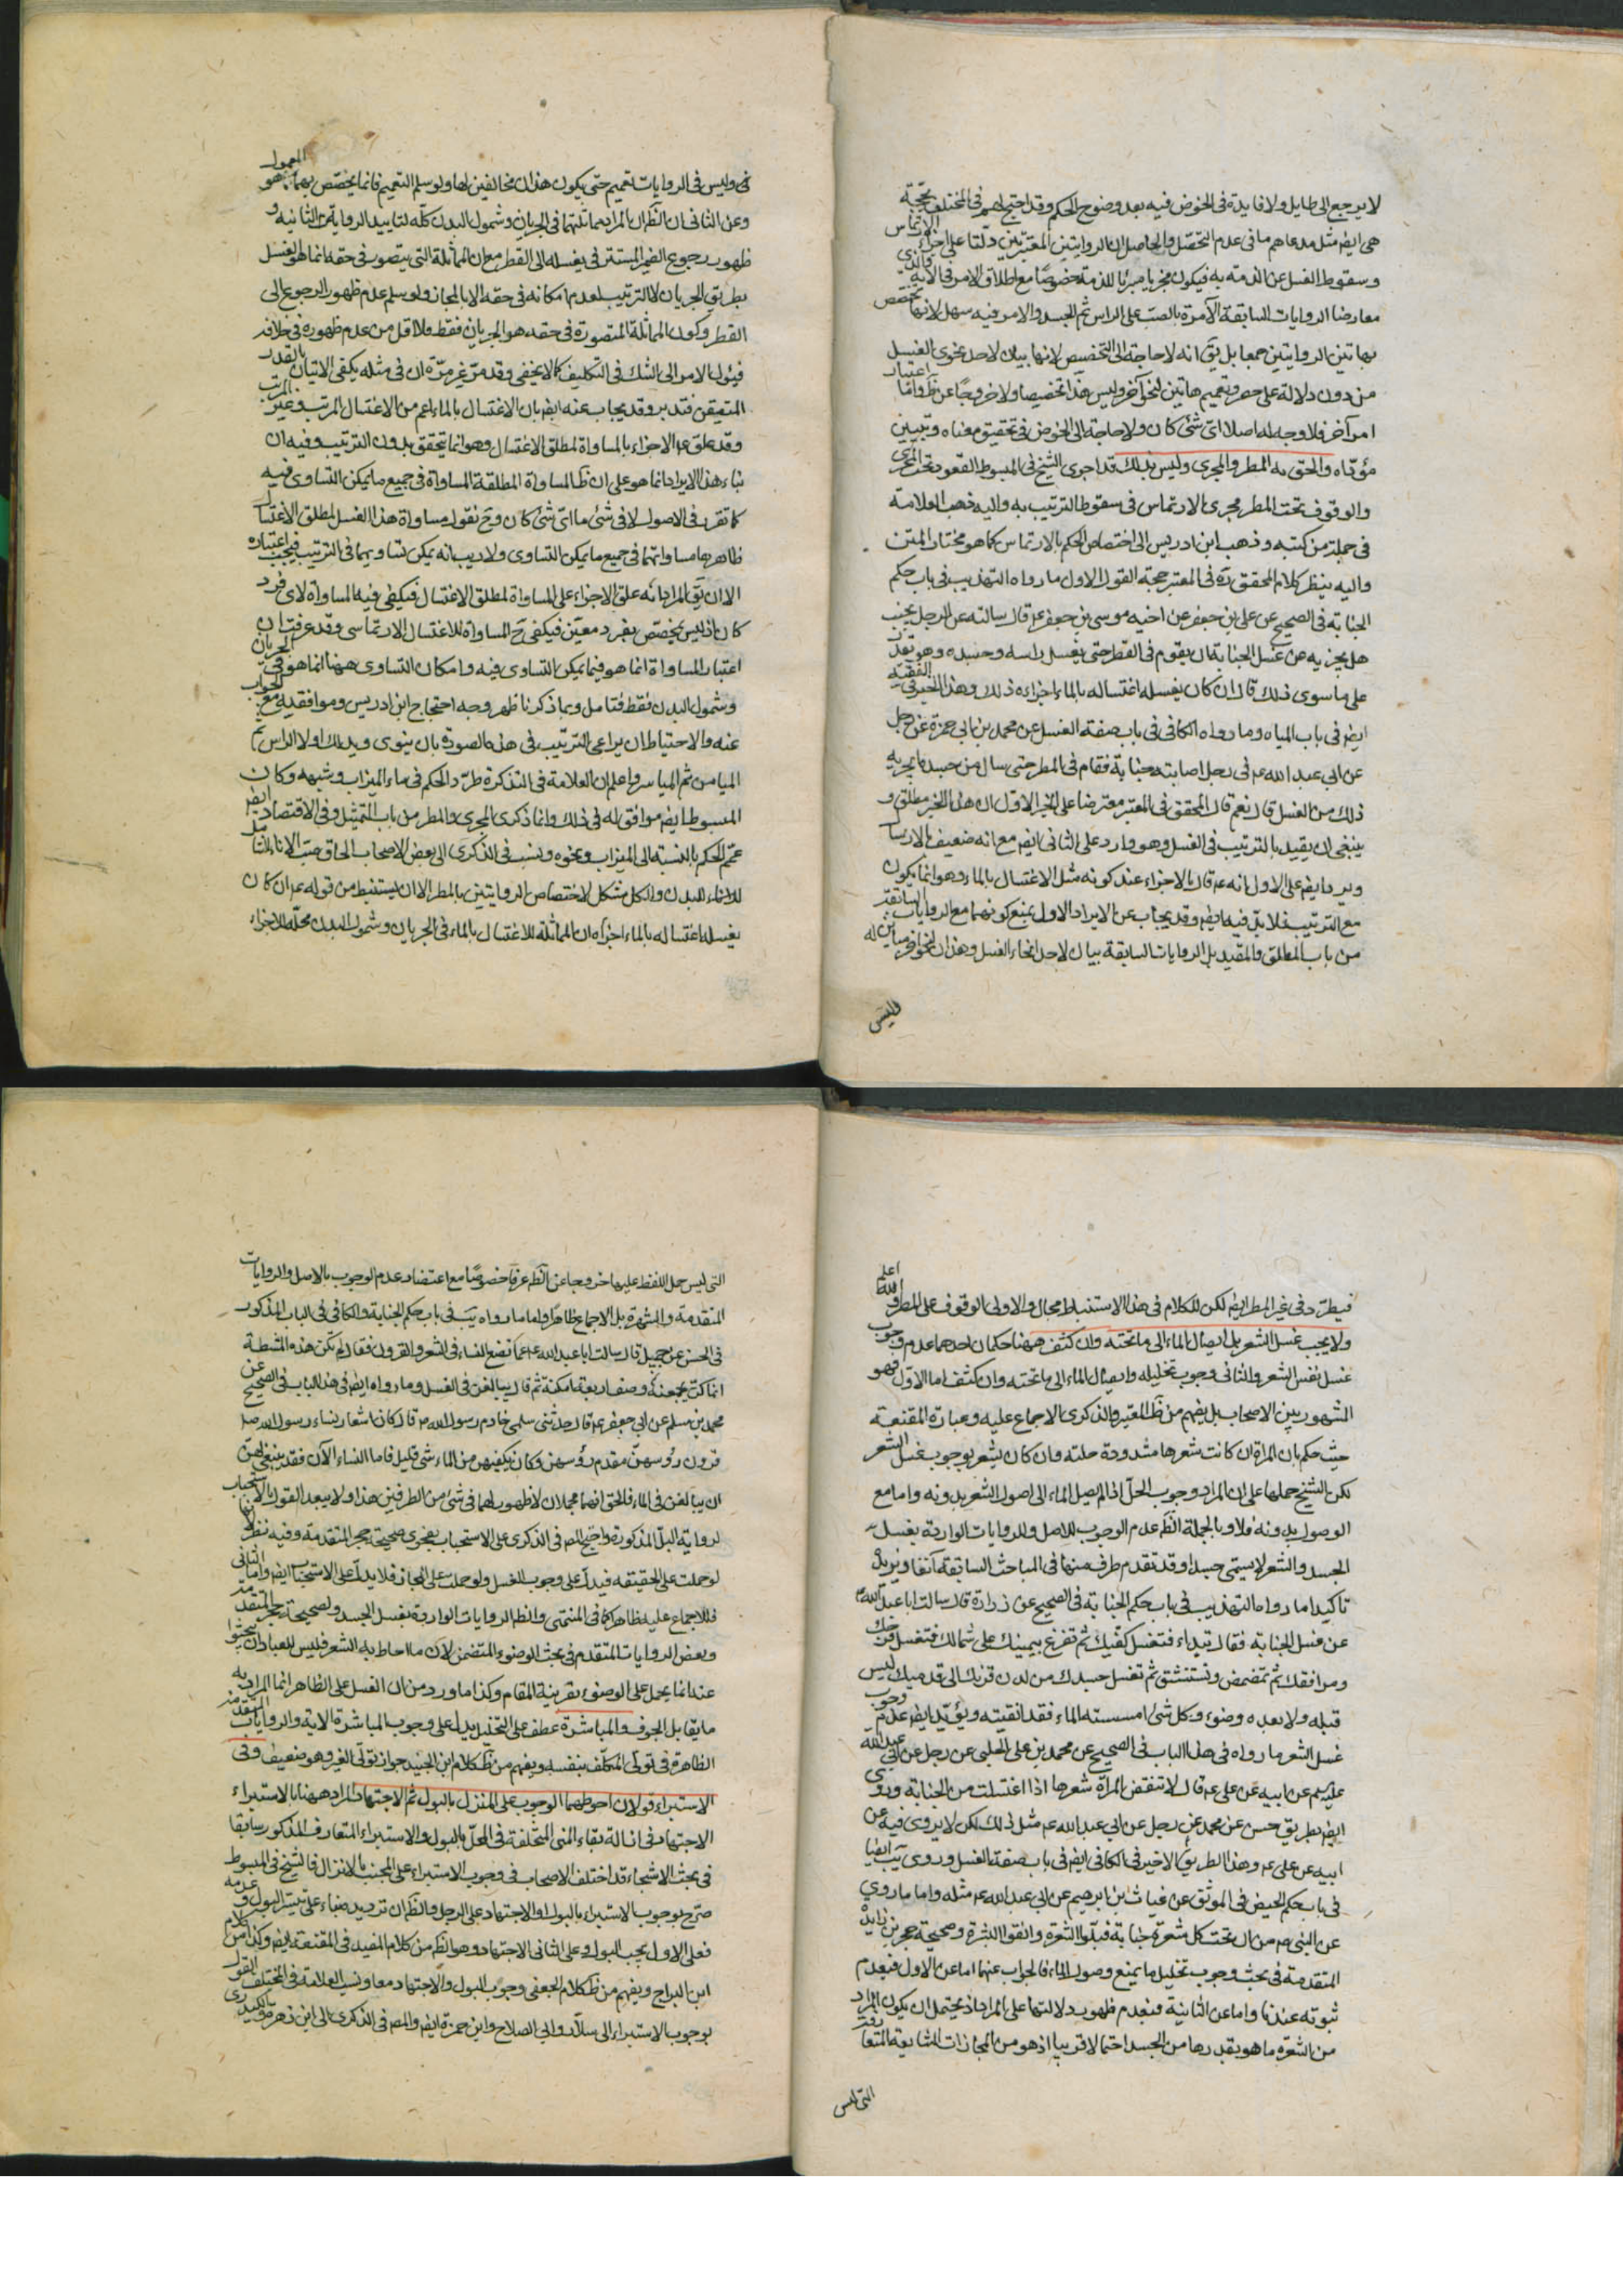 لا يرجع الى طايل ولا فايدة في الخوض فيه بعد وضوح الحكم وقد احتج لهم في المختلف بحجة
هى ايضا مثل مدعاهم ما في عدم التحصّل والحاصل ان الروايتين المعتبرتين دلّتا على اجزاء الارتماس
وسقوط الغسل عن الذمة به فيكون مجزيا مبرئا للذمة خصوصًا مع اطلاق الامر في الاية والذى
معارضا الروايات السابقة الآمرة بالصبّ على الراس ثم الجسد والامر فيه سهل لانها تخصص
بهاتين الروايتين جمعا بل يق انه لا حاجة الى التخصيص لانها بيان لاحد نحوى الغسل
من دون دلالة على حصر وتعميم هاتين لنحو آخر وليس هذا تخصيصا ولا خروجًا عن ظ وامّا اعتبار
امر آخر فلا وجه له اصلا اىّ شئ كان ولا حاجة الى الخوض في تحقيق معناه وتبيين
مؤدّاه والحق به المطر والمجرى وليس بذلك قد اجرى الشيخ في المبسوط القعود تحت المجرى
والوقوف تحت المطر مجرى الارتماس في سقوط الترتيب به واليه ذهب العلامة
في جملة من كتبه وذهب ابن ادريس الى اختصاص الحكم بالارتماس كما هو مختار المتن
واليه ينظر كلام المحقق ره في المعتبر حجة القول الاول ما رواه التهذيب في باب حكم
الجنابة في الصحيح عن على بن جعفر عن اخيه موسى بن جعفر ع قال سالته عن الرجل يجنب
هل يجزيه عن غسل الجنابة ان يقوم في القطر حتى يغسل راسه وجسده وهو يقدر
على ما سوى ذلك قال ان كان يغسله اغتساله بالماء اجزاءه ذلك وهذا الخبر في الفقيه
ايضا في باب المياه وما رواه الكافى في باب صفة الغسل عن محمد بن ابى حمزة عن رجل
عن ابى عبد الله ع في رجل اصابته جنابة فقام في المطر حتى سال من جسده ايجزيه
ذلك من الغسل قال نعم قال المحقق في المعتبر معترضا على الخبر الاول ان هذا الخبر مطلق و
ينبغى ان يقيد بالترتيب في الغسل وهو وارد على الثانى ايضا مع انه ضعيف بالارسا
ويرد ايضا على الاول انه ع قال بالاجزاء عند كونه مثل الاغتسال بالماء وهو انما يكون
مع الترتيب فلا بدّ فيه ايضا وقد يجاب عن الايراد الاول بمنع كونهما مع الروايات السابقة
من باب المطلق والمقيد بل الروايات السابقة بيان لاحد انحاء الغسل وهذان لنحو آخر مباين له
وليس
في وليس في الروايات تعميم حتى يكون هذان مخالفين لها ولو سلم التعميم فانما يخصّص بهما كما هو المعمول
وعن الثانى ان الظ ان المراد مماثلتهما في الجريان وشمول البدن كلّه لتاييد الرواية الثانية و
ظهور رجوع الضمير المستتر في يغسله الى القطر مع ان المماثلة التى يتصور في حقه انما هو الغسل
بطريق الجريان لا الترتيب لعدم امكانه في حقه الا بالمجاز ولو سلم عدم ظهور الرجوع الى
القطر وكون المماثلة المتصورة في حقه هو الجريان فقط فلا اقل من عدم ظهوره في خلافه
فيئول الامر الى الشك في التكليف كما لا يخفى وقد مرّ غير مرّة ان في مثله يكفى الاتيان بالقدر
المتيقن فتدبر وقد يجاب عنه ايضا بان الاغتسال بالماء اعم من الاغتسال المرتب وغير المرتب
وقد علق ع الاجزاء بالمساواة لمطلق الاغتسال وهو انما يتحقق بدون الترتيب وفيه ان
بناء هذا الايراد انما هو على ان ظ المساواة المطلقة المساواة في جميع ما يمكن التساوى فيه
كما تقرر في الاصول لا في شئ ما اىّ شئ كان وح نقول مساواة هذا الغسل لمطلق الاغتسال
ظاهرها مساواتهما في جميع ما يمكن التساوى ولا ريب انه يمكن تساويهما في الترتيب فيجب اعتباره
الا ان يق المراد انه علق الاجزاء على المساواة لمطلق الاغتسال فيكفى فيه المساواة لاى فرد
كان اذ ليس يختص بفرد معيّن فيكفى ح المساواة للاغتسال الارتماسى وقد عرفت ان
اعتبار المساواة انما هو فيما يمكن التساوى فيه وامكان التساوى ههنا انما هو في الجريان
وشمول البدن فقط فتامل وبما ذكرنا ظهر وجه احتجاج ابن ادريس وموافقيه مع الجواب
عنه والاحتياط ان يراعى الترتيب في هذه الصورة بان ينوى ويدلك اولا الراس ثم
الميامن ثم المياسر واعلم ان العلامة في التذكرة طرّد الحكم في ماء الميزاب وشبهه وكان
المبسوط ايضا موافق له في ذلك وانما ذكرى المجرى والمطر من باب التمثيل وفي الاقتصاد ايضا
عمّم الحكم بالنسبة الى الميزاب ونحوه ونسب في الذكرى الى بعض الاصحاب الحاق صبّ الاناء الشامل
للبدن والكل مشكل لاختصاص الروايتين بالمطر الا ان يستنبط من قوله ع ان كان
يغسله اغتساله بالماء اجزاه ان المماثلة للاغتسال بالماء في الجريان وشمول البدن محلّه للاجزاء
فيطرّد في غير المطر ايضا لكن للكلام في هذا الاستنباط مجال والاولى الوقوف على المطر والله اعلم
ولا يجب غسل الشعر بل ايصال الماء الى ما تحته وان كثف ههنا حكمان احدهما عدم وجوب
غسل نفس الشعر والثانى وجوب تخليله وايصال الماء الى ما تحته وان كثف اما الاول فهو
المشهور بين الاصحاب بل يفهم من ظ المعتبر والذكرى الاجماع عليه وعبارة المقنعة
حيث حكم بان المراة ان كانت شعرها مشدودة حلته وان كان يشعر بوجوب غسل الشعر
لكن الشيخ حملها على ان المراد وجوب الحلّ اذا لم يصل الماء الى اصول الشعر بدونه واما مع
الوصول بدونه فلا وبالجملة الظ عدم الوجوب للاصل وللروايات الواردة بغسل
الجسد والشعر لا يسمى جسدا وقد تقدم طرف منها في المباحث السابقة آنفا ويزيده
تاكيدا ما رواه التهذيب في باب حكم الجنابة في الصحيح عن زرارة قال سالت ابا عبد الله ع
عن غسل الجنابة فقال تبداء فتغسل كفّيك ثم تفرغ بيمينك على شمالك فتغسل فرجك
ومرافقك ثم تمضمض وتستنشق ثم تغسل جسدك من لدن قرنك الى قدميك ليس
قبله ولا بعده وضوء وكل شئ امسسته الماء فقد انقيته ويؤيّد ايضا عدم وجوب
غسل الشعر ما رواه في هذا الباب في الصحيح عن محمد بن على الحلبى عن رجل عن ابى عبد الله
ع عن ابيه عن على ع قال لا تنقض المراة شعرها اذا اغتسلت من الجنابة وروى
ايضا بطريق حسن عن محمد عن رجل عن ابى عبد الله ع مثل ذلك لكن لا يروى فيه عن
ابيه عن على ع وهذا الطريق الاخير في الكافى ايضا في باب صفة الغسل وروى يب ايضا
في باب حكم الحيض في الموثق عن غياث بن ابرهيم عن ابى عبد الله ع مثله واما ما روى
عن النبى ص من ان تحت كل شعرة جنابة فبلّوا الشعرة وانقوا البشرة وصحيحة حجر بن زايدة
المتقدمة في بحث وجوب تخليل ما يمنع وصول الماء فالجواب عنهما اما عن الاول فبعدم
ثبوته عندنا واما عن الثانية فبعدم ظهور دلالتها على المراد اذ يحتمل ان يكون المراد
من الشعرة ما هو بقدرها من الجسد احتمالا قريبا اذ هو من المجازات الشايعة المتعارفة
التى ليس
التى ليس حمل اللفظ عليها خروجا عن الظ عرفا خصوصًا مع اعتضاد عدم الوجوب بالاصل والروايات
المتقدمة والشهرة بل الاجماع ظاهرًا واما ما رواه يب في باب حكم الجنابة والكافى في الباب المذكور
في الحسن عن جميل قال سالت ابا عبد الله ع عما تصنع النساء في الشعر والقرون فقال لم تكن هذه المشطة
انما كنّ يجمعنه ثم وصف اربعة امكنة ثم قال يبالغن في الغسل وما رواه ايضا في هذا الباب في الصحيح عن
محمد بن مسلم عن ابى جعفر ع قال حدثتنى سلمى خادم رسول الله ص قال كان اشعار نساء رسول الله ص
قرون رؤسهنّ مقدم رؤسهن وكان يكفيهن من الماء شئ قليل فاما النساء الآن فقد ينبغى لهنّ
ان يبالغن في الماء فالحق انهما مجملان لا ظهور لهما في شئ من الطرفين هذا ولا يبعد القول بالاستحباب
لرواية البلّ المذكورة واحتج المص في الذكرى على الاستحباب بفحوى صحيحة حجر المتقدمة وفيه نظر لانها
لو حملت على الحقيقه فيدلّ على وجوب الغسل ولو حملت على المجاز فلا يدلّ على الاستحباب ايضا واما الثانى
فللاجماع عليه ظاهرًا كما في المنتهى وانظم الروايات الواردة بغسل الجسد ولصحيحة حجر المتقدمة
وبعض الروايات المتقدم في بحث الوضوء المتضمن لان ما احاط به الشعر فليس للعباد ان يبحثوا
عنه انما يحمل على الوضوء بقرينة المقام وكذا ما ورد من ان الغسل على الظاهر انما المراد به
ما يقابل الجوف والمباشرة عطف على التخليل يدل على وجوب المباشرة الاية والروايات المتقدمة
الظاهرة في تولى المكلّف بنفسه ويفهم من ظ كلام ابن الجنيد جواز تولّى الغير وهو ضعيف وفى
الاستبراء قولان احوطهما الوجوب على المنزل بالبول ثم الاجتهاد المراد ههنا بالاستبراء
الاجتهاد في ازالة بقاء المنى المتخلفة في المحلّ بالبول والاستبراء المتعارف المذكور سابقا
في بحث الاستنجاء قد اختلف الاصحاب في وجوب الاستبراء على المجنب بالانزال فالشيخ في المبسوط
صرّح بوجوب الاستبراء بالبول او الاجتهاد على الرجل والظ ان ترديده بناء على تيسّر البول وعدمه
فعلى الاول يجب البول وعلى الثانى الاجتهاد وهو الظ من كلام المفيد في المقنعة ايضا وكذا من كلام
ابن البراج ويفهم من ظ كلام الجعفى وجوب البول والاجتهاد معا ونسب العلامة في المختلف القول
بوجوب الاستبراء الى سلّار وابى الصلاح وابن حمزة ايضا والمص في الذكرى الى ابن زهرة